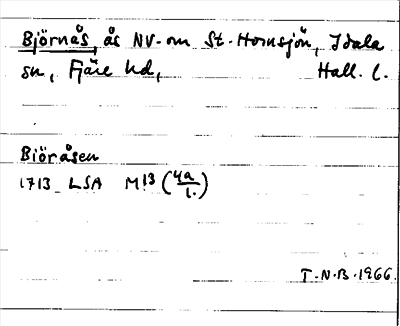 Björnås, ås NV-om St. Hornsjön, Idala
sn, Fjäre hd, Hall. l.
Biöråsen
1713 LSA M13 (4a/1.)
T.N.B. 1966.